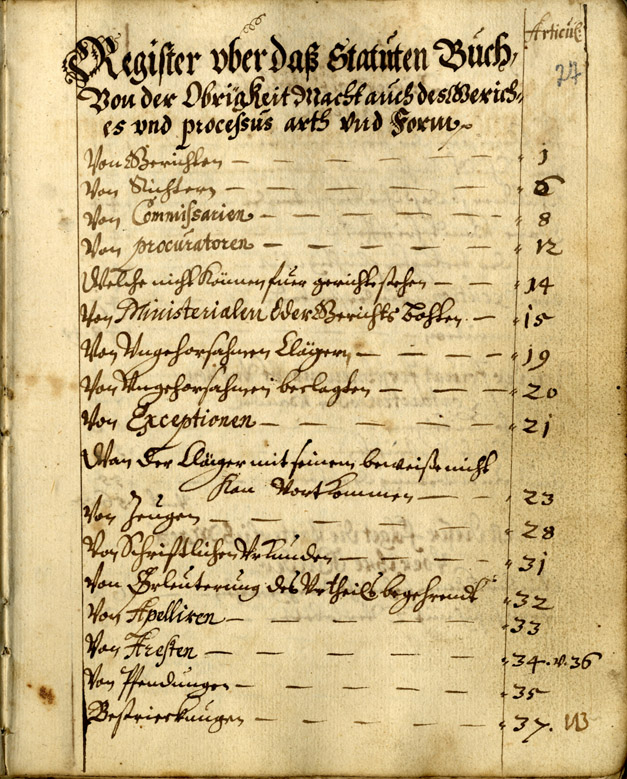 Articul:
27
Register vber daß Statuten Buch,
Von der Obrigkeit Macht auch des Gerich-
es vnd processus arth vnd Form
Von Gerichten 1
Von Richtern 6
Von Commissarien 8
Von procuratoren 12
Welche nicht können fuer gerichte stehen 14
Von Ministerialen oder Gerichts botten 15
Von Vngehorsahmen Clägern 19
Von Vngehorsahmen beclagten 20
Von Exceptionen 21
Wan der Cläger mit seinem beweiße nicht
kan Vortkommen 23
Von Zeugen 28
Von Schrifftlichen Vrkunden 31
Von Erleuterung des Vrtheils begehrende 32
Von Apelliren 33
Von Aresten 34. v. 36
Von Pfendungen 35
Bestrickungen 37.